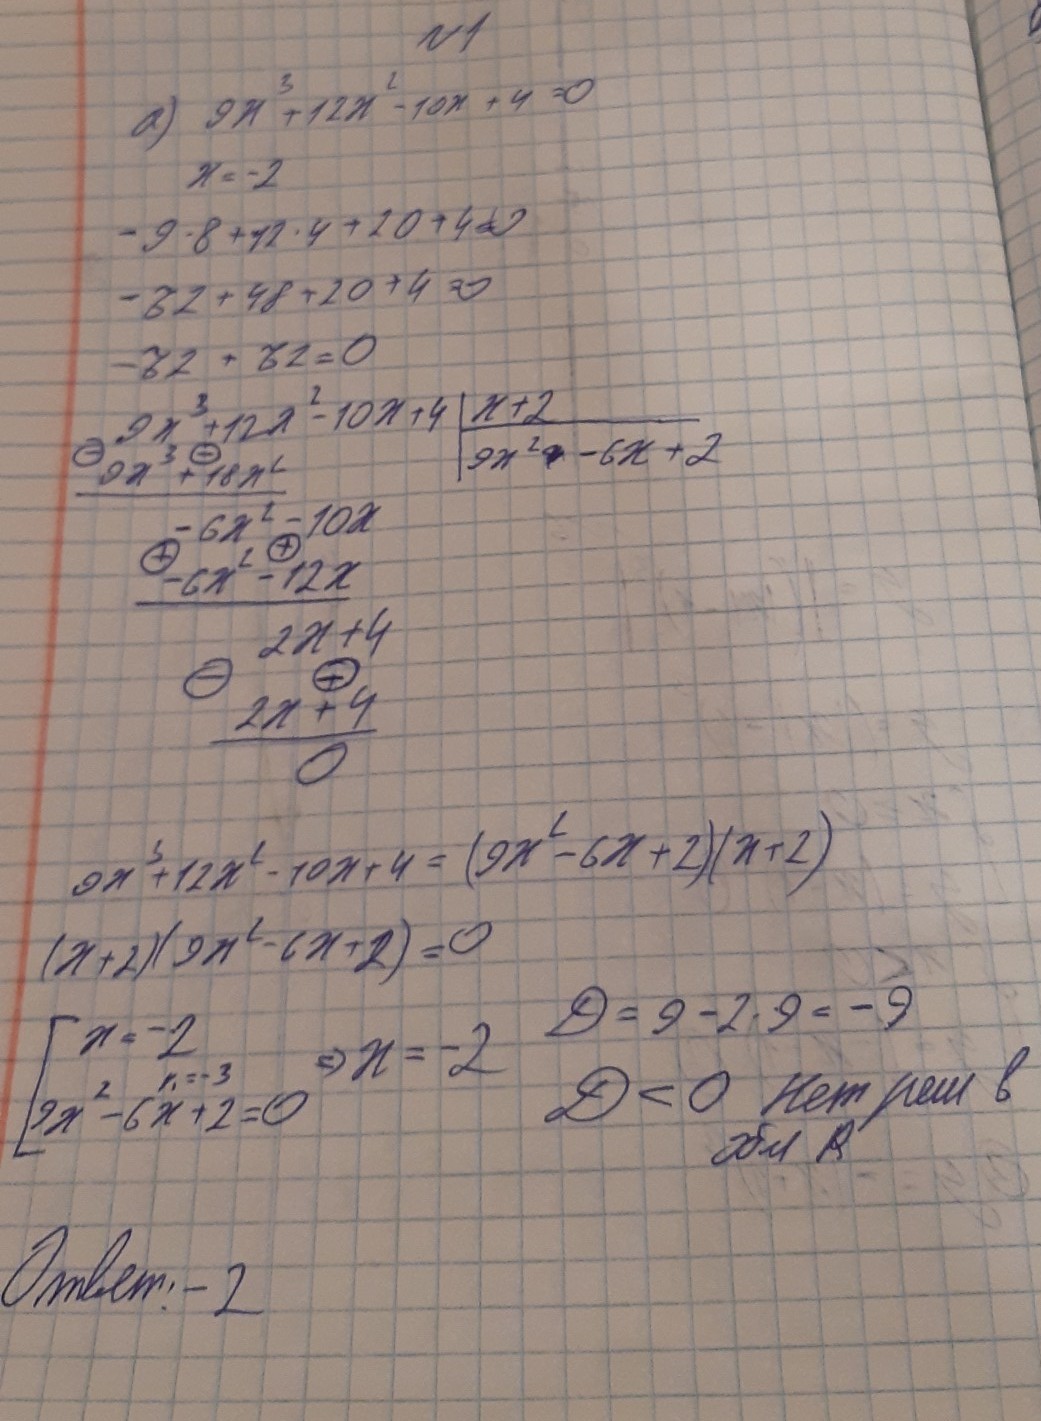 №1
а) 9x³+12x²-10x+4=0
x=-2
-9·8+12·4+20+4=0
-72+48+20+4=0
-72+72=0
9x³+12x²-10x+4 | x+2
⊖ ⊖ 9x²-6x+2
9x³+18x²
-6x²-10x
⊕ ⊕
-6x²-12x
2x+4
⊖ ⊕
2x+4
0
9x³+12x²-10x+4=(9x²-6x+2)(x+2)
(x+2)(9x²-6x+2)=0
[ x=-2
9x²-6x+2=0
⇒ x=-2
D=9-2·9=-9
D<0 Нет реш в
обл R
Ответ: -2